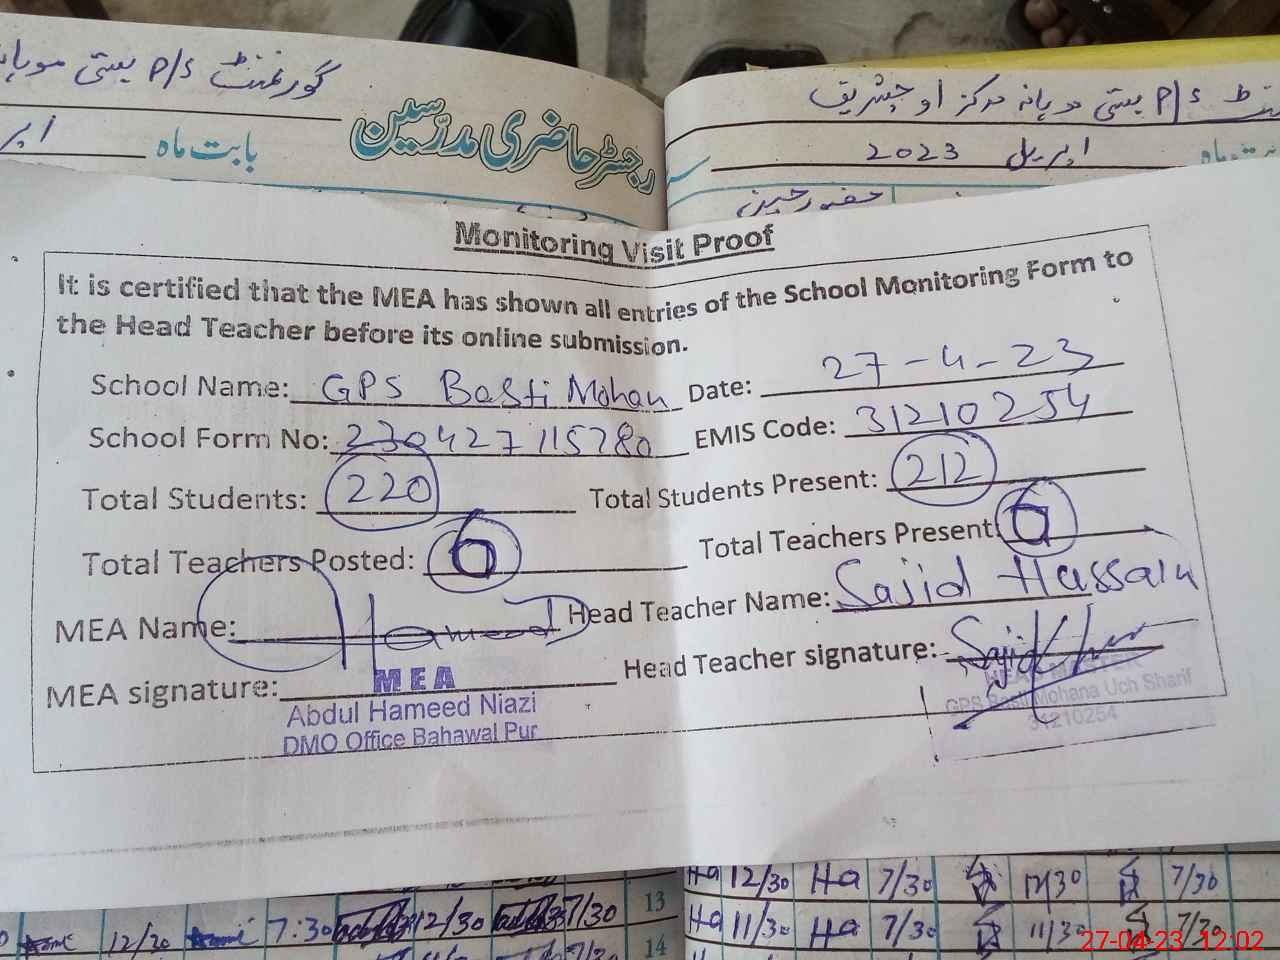 گورنمنٹ P/S بستی
رجسٹر حاضری مدرسین
بابت ماہ
P/S بستی موہانہ مرکز اوچشریف
اپریل 2023
Monitoring Visit Proof
It is certified that the MEA has shown all entries of the School Monitoring Form to
the Head Teacher before its online submission.
School Name: GPS Basti Mohan Date: 27-4-23
School Form No: 230427115780 EMIS Code: 31210254
Total Students: 220 Total Students Present: 212
Total Teachers Posted: 6 Total Teachers Present: 6
MEA Name: Hameed Head Teacher Name: Sajid Hussain
MEA signature: Head Teacher signature: Sajid
MEA
Abdul Hameed Niazi
DMO Office Bahawal Pur
HEAD MASTER
GPS Basti Mohana Uch Sharif
31210254
Ha 12/30 Ha 7/30 12/30 7/30
12/30 7:30 12/30 7/30 13
Ha 11/30 Ha 7/30 11/30 7/30
14
27-04-23 12:02